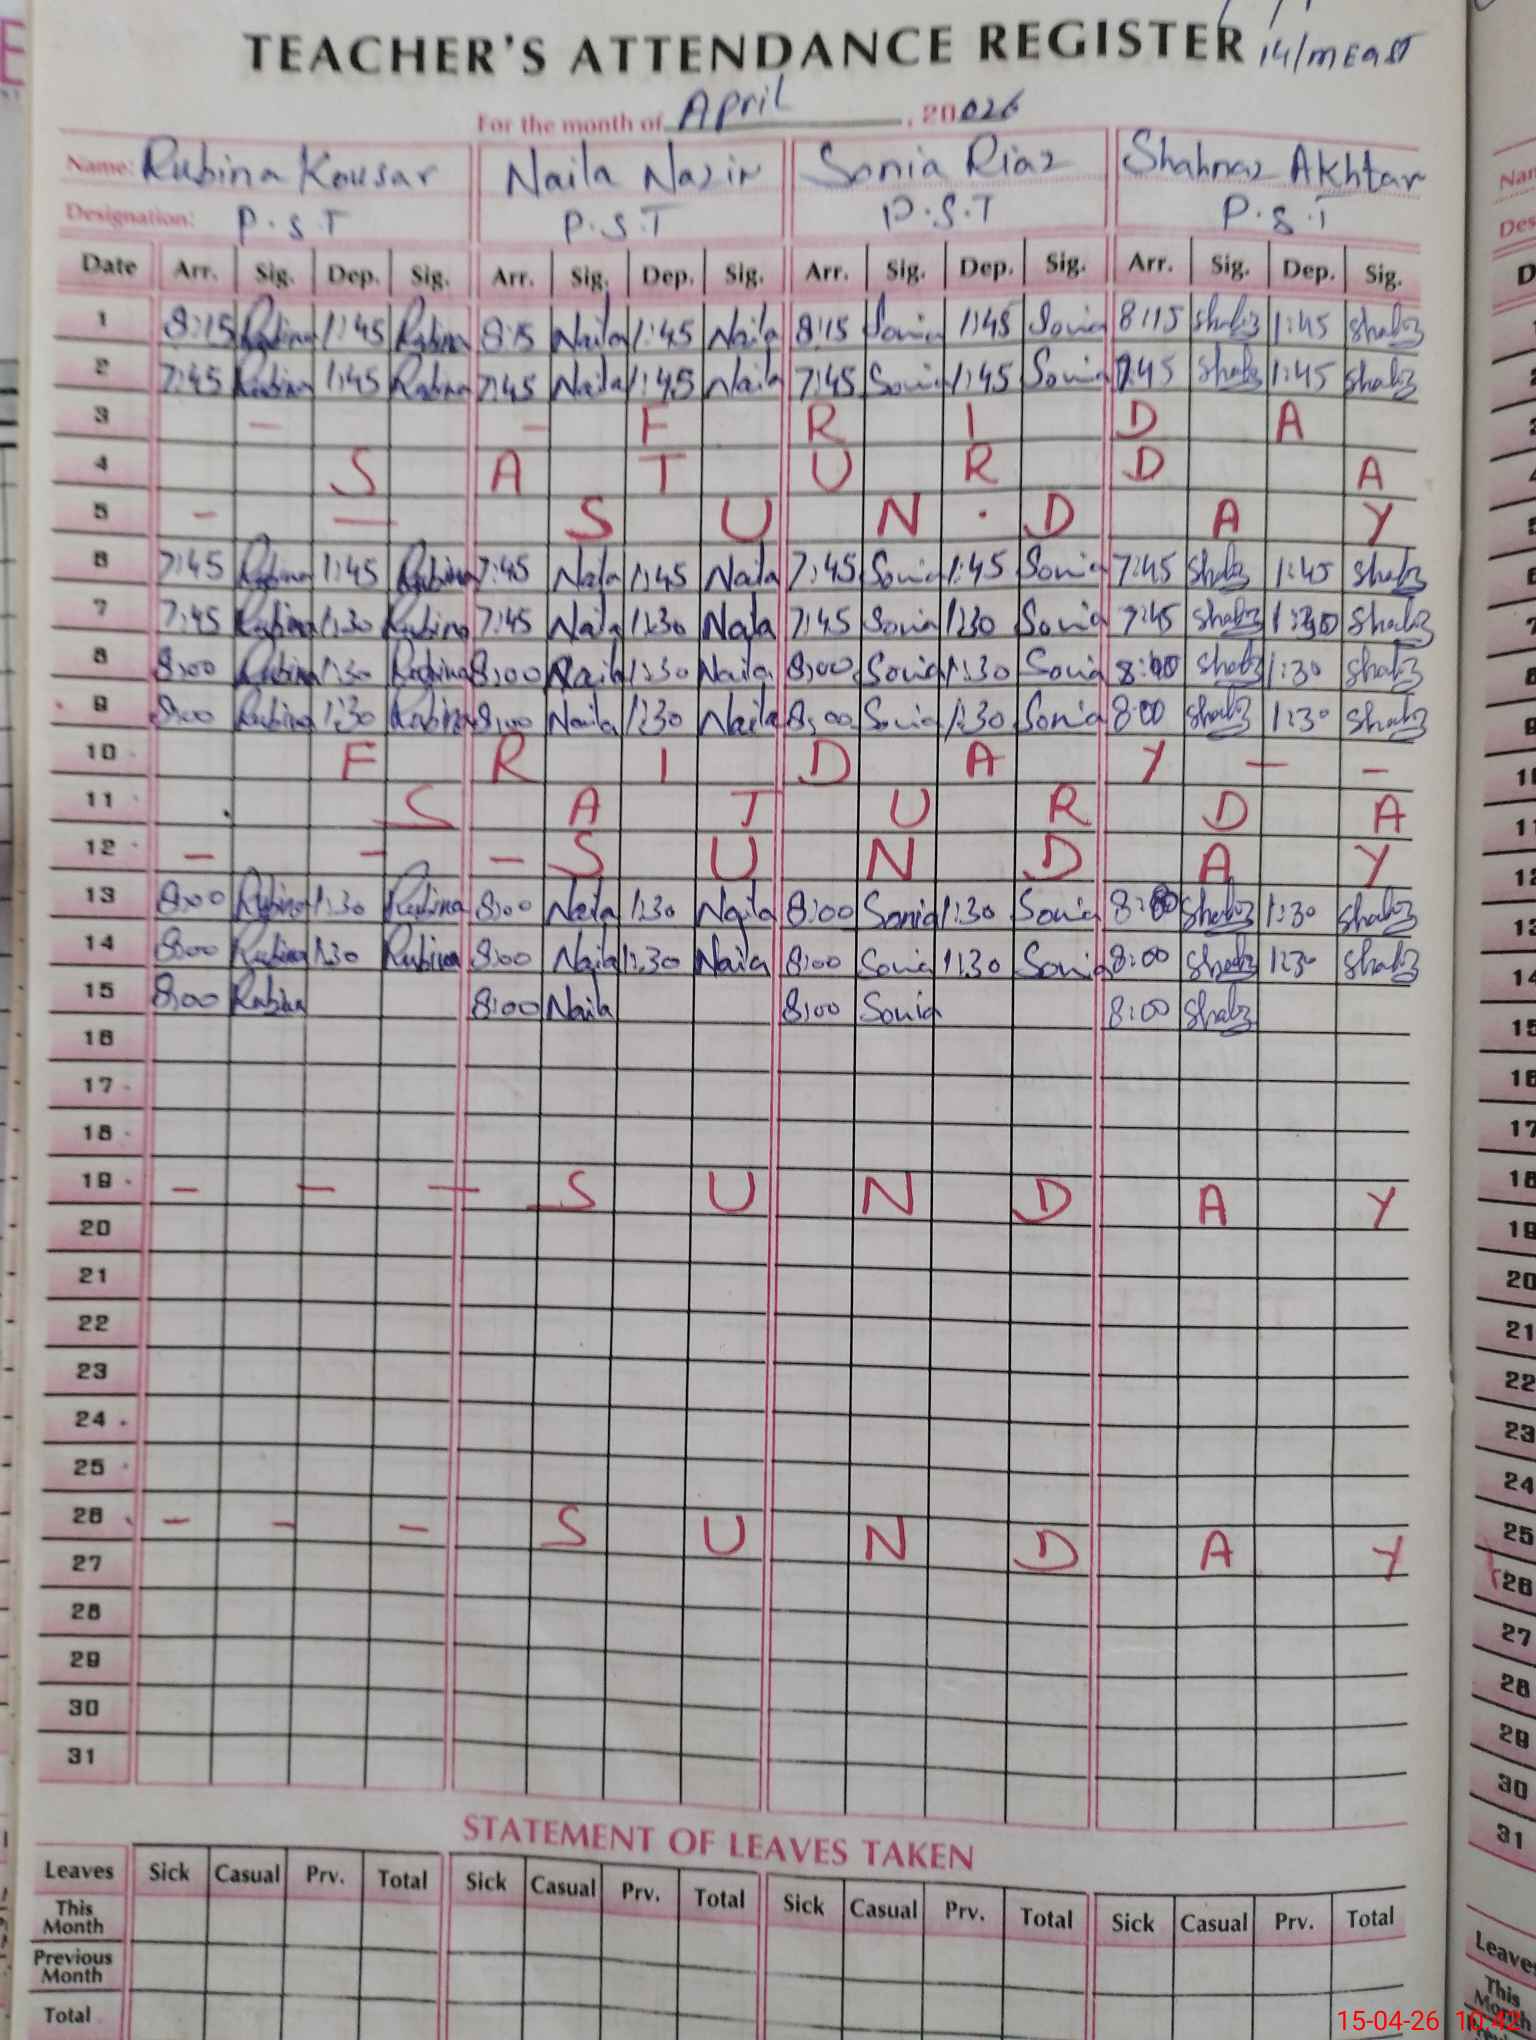 TEACHER'S ATTENDANCE REGISTER 14/m East
For the month of April, 2026
Name: Rubina Kousar Naila Nazir Sonia Riaz Shahnaz Akhtar
Designation: P.S.T P.S.T P.S.T P.S.T
Date Arr. Sig. Dep. Sig. Arr. Sig. Dep. Sig. Arr. Sig. Dep. Sig. Arr. Sig. Dep. Sig.
1 8:15 Rubina 1:45 Rubina 8:15 Naila 1:45 Naila 8:15 Sonia 1:45 Sonia 8:15 Shabz 1:45 Shabz
2 7:45 Rubina 1:45 Rubina 7:45 Naila 1:45 Naila 7:45 Sonia 1:45 Sonia 7:45 Shabz 1:45 Shabz
3 - - F R I D A
4 S A T U R D A
5 - - S U N . D A Y
6 7:45 Rubina 1:45 Rubina 7:45 Naila 1:45 Naila 7:45 Sonia 1:45 Sonia 7:45 Shabz 1:45 Shabz
7 7:45 Rubina 1:30 Rubina 7:45 Naila 1:30 Naila 7:45 Sonia 1:30 Sonia 7:45 Shabz 1:30 Shabz
8 8:00 Rubina 1:30 Rubina 8:00 Naila 1:30 Naila 8:00 Sonia 1:30 Sonia 8:00 Shabz 1:30 Shabz
9 8:00 Rubina 1:30 Rubina 8:00 Naila 1:30 Naila 8:00 Sonia 1:30 Sonia 8:00 Shabz 1:30 Shabz
10 F R I D A Y - -
11 S A T U R D A
12 - - - S U N D A Y
13 8:00 Rubina 1:30 Rubina 8:00 Naila 1:30 Naila 8:00 Sonia 1:30 Sonia 8:00 Shabz 1:30 Shabz
14 8:00 Rubina 1:30 Rubina 8:00 Naila 1:30 Naila 8:00 Sonia 1:30 Sonia 8:00 Shabz 1:30 Shabz
15 8:00 Rubina 8:00 Naila 8:00 Sonia 8:00 Shabz
16
17
18
19 - - - S U N D A Y
20
21
22
23
24
25
26 - - - S U N D A Y
27
28
29
30
31
STATEMENT OF LEAVES TAKEN
Leaves Sick Casual Prv. Total Sick Casual Prv. Total Sick Casual Prv. Total Sick Casual Prv. Total
This Month
Previous Month
Total
15-04-26 10:42